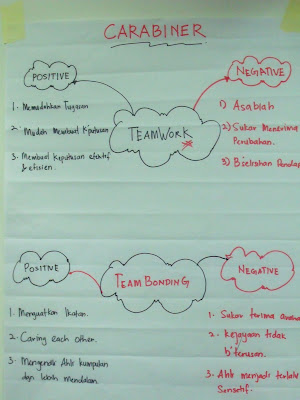 CARABINER
POSITIVE
NEGATIVE
TEAMWORK
1. Memudahkan Tugasan
2. Mudah Membuat K'putusan
3. Membuat keputusan efektif
& efisien.
1) Asabiah
2) Sukar Menerima
Perubahan.
3) B'selisihan
POSITIVE
NEGATIVE
TEAM BONDING
1. Menguatkan Ikatan.
2. Caring each other.
3. Mengenali Ahli kumpulan
dgn lebih mendalam.
1. Sukar terima
2. Kejayaan tidak
b'terusan.
3. Ahli menjadi terlalu
Sensetif.